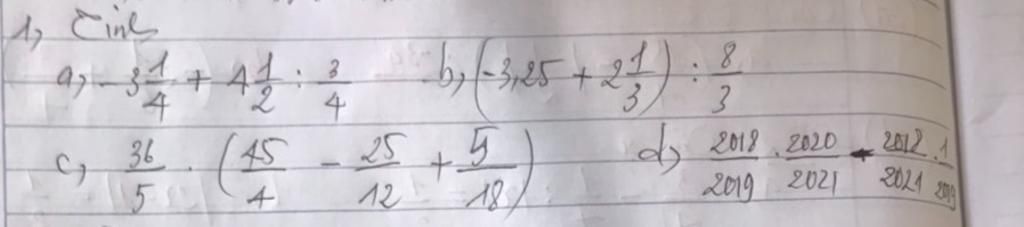 1, Tính
a, -3 1/4 + 4 1/2 : 3/4 b, (-3,25 + 2 1/3) : 8/3
c, 36/5 . (45/4 - 25/12 + 5/18) d, 2018/2019 . 2020/2021 - 2018/2021 . 1/2019